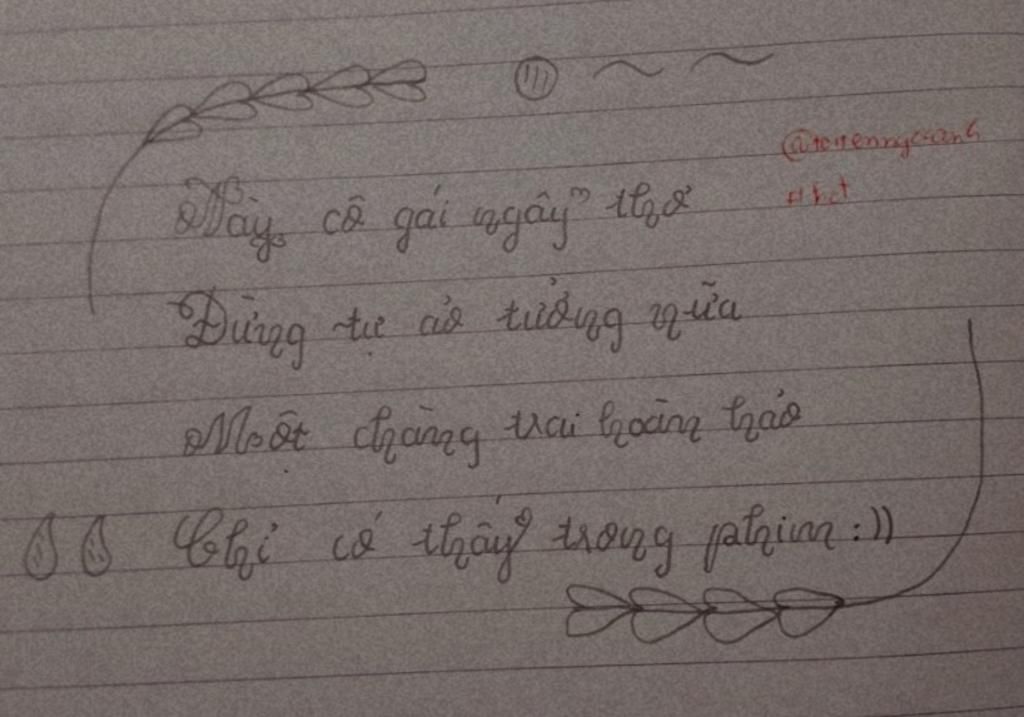 Này cô gái ngây thơ
Đừng tự ảo tưởng nữa
Một chàng trai hoàn hảo
Chỉ có thấy trong phim :))